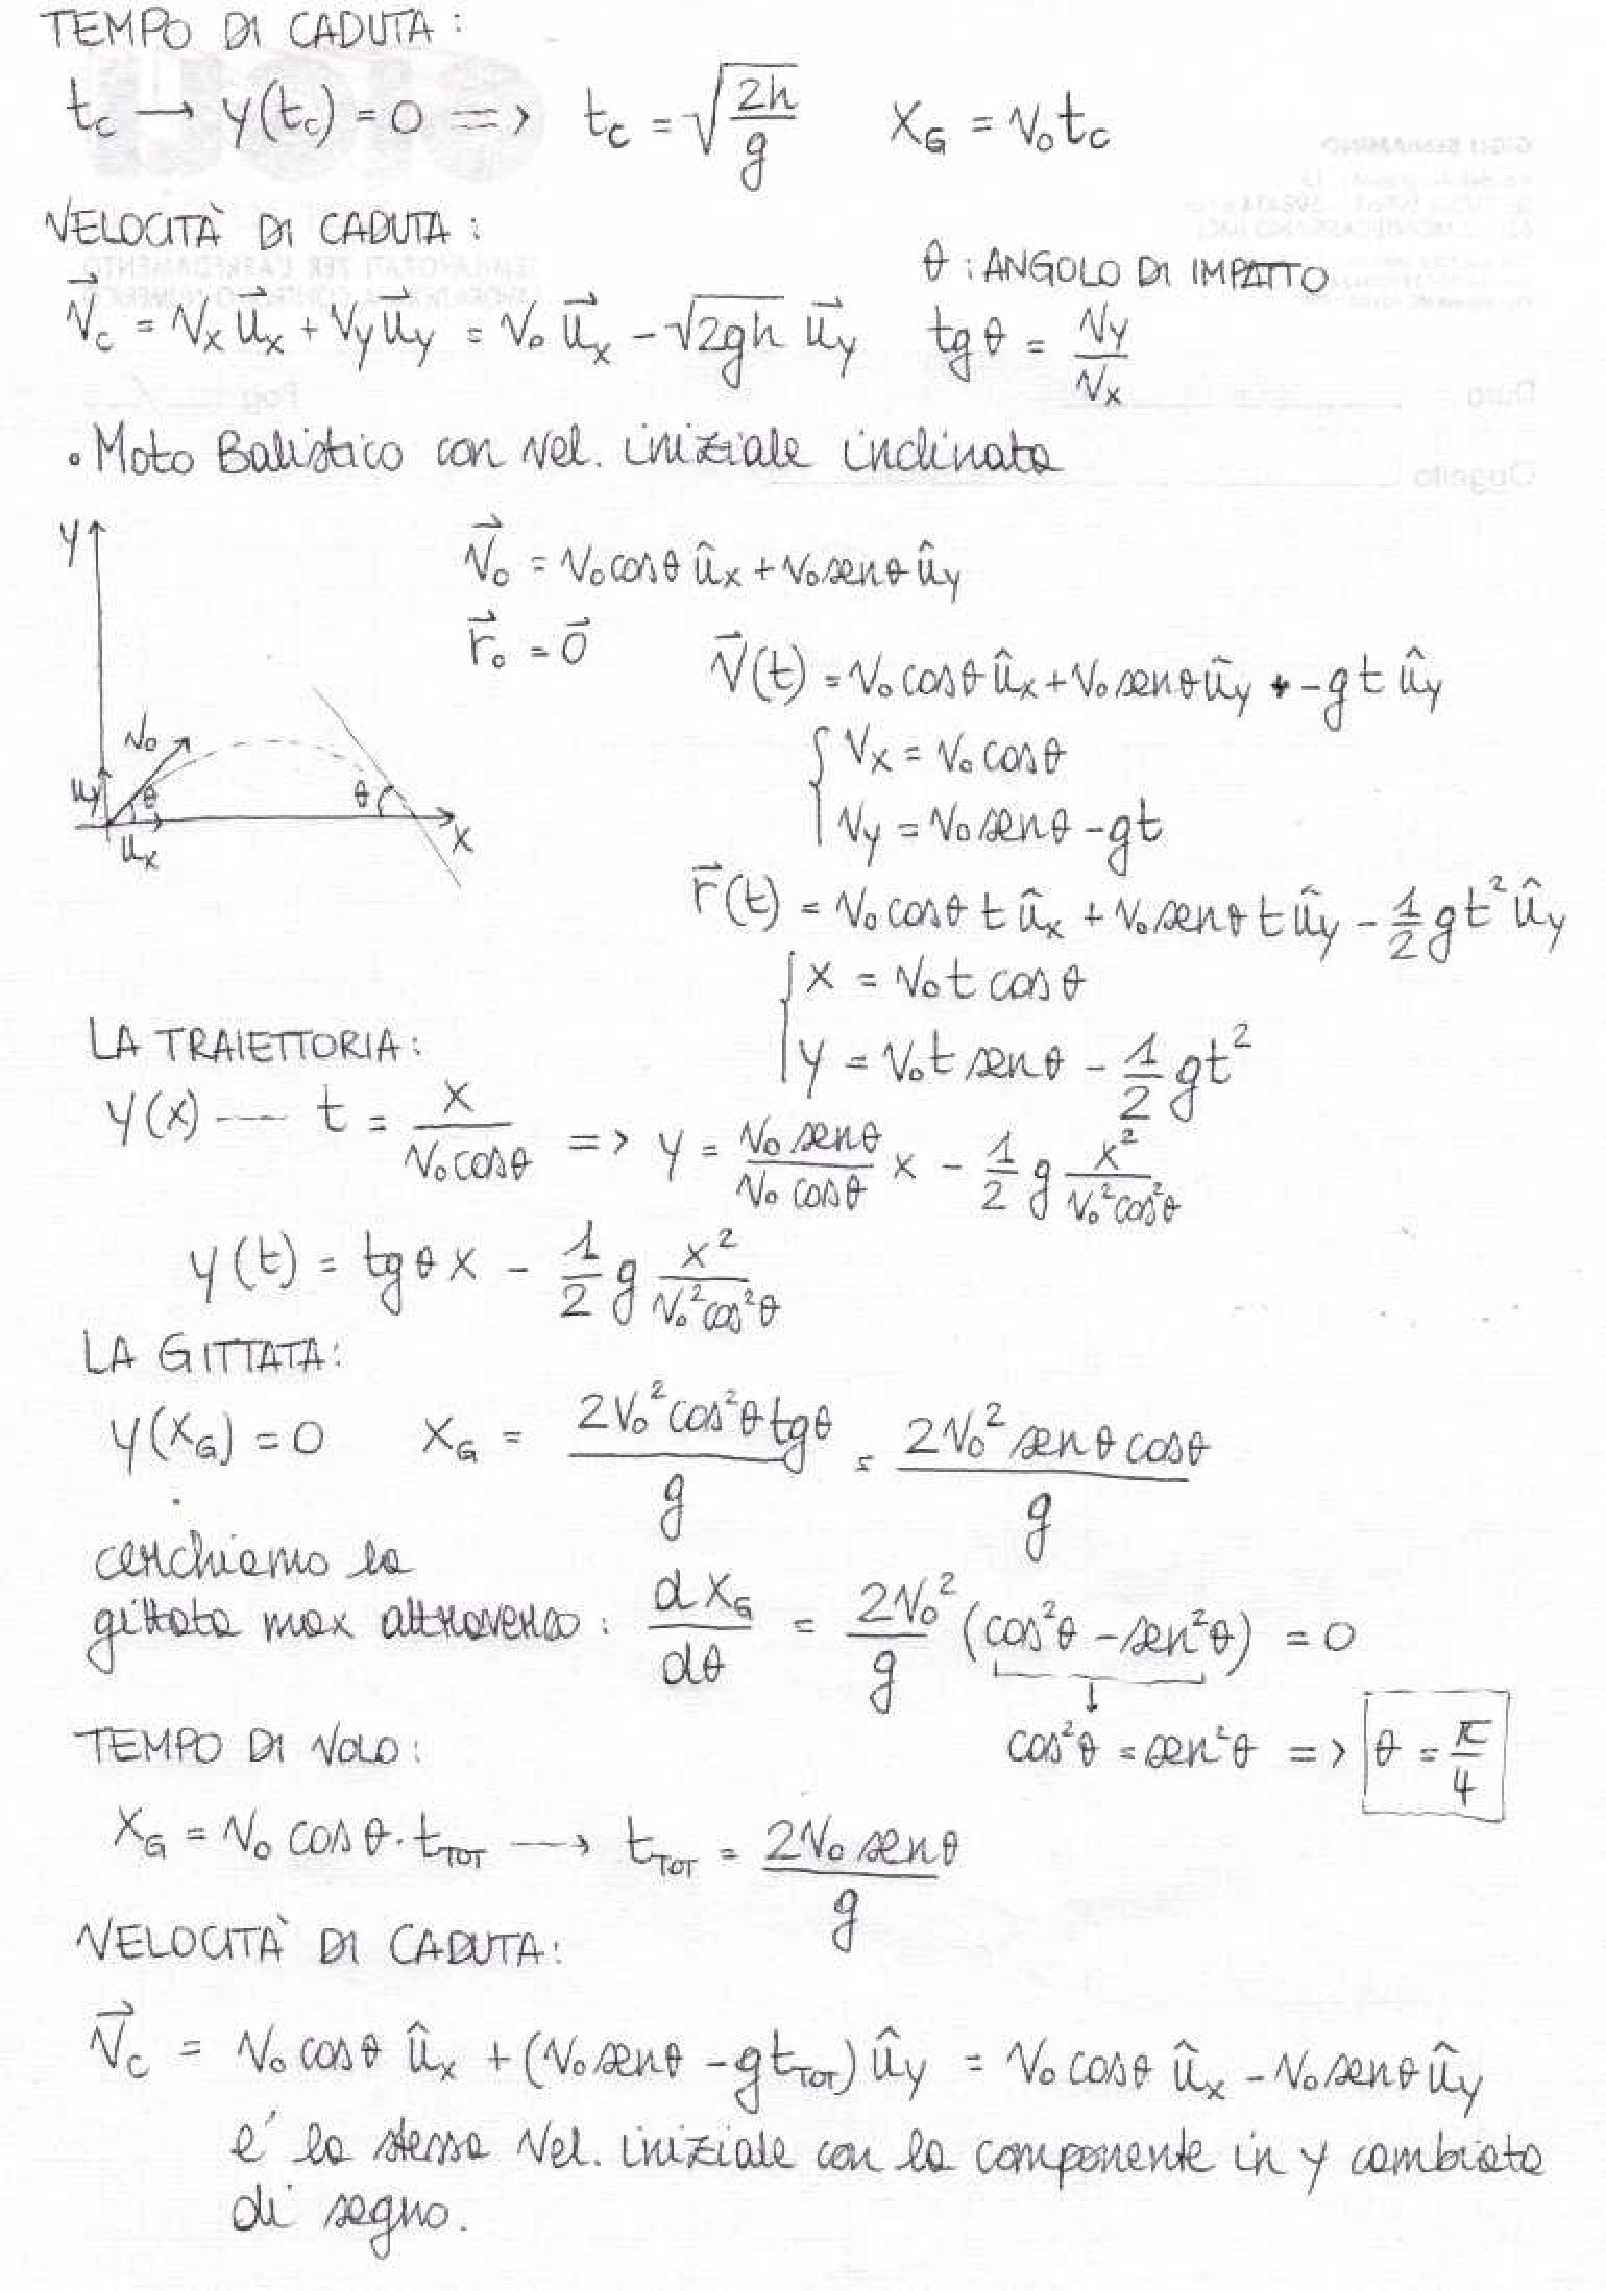 TEMPO DI CADUTA :
t_c → y(t_c) = 0 => t_c = √(2h/g) x_G = v₀t_c
VELOCITÀ DI CADUTA :
θ : ANGOLO DI IMPATTO
v⃗_c = v_x u⃗_x + v_y u⃗_y = v₀ u⃗_x − √(2gh) u⃗_y tg θ = v_y/v_x
• Moto Balistico con vel. iniziale inclinata
y
v⃗₀ = v₀ cosθ û_x + v₀ senθ û_y
r⃗₀ = 0⃗
v⃗(t) = v₀ cosθ û_x + v₀ senθ û_y + −gt û_y
v₀
{ v_x = v₀ cosθ
u_y θ θ
v_y = v₀ senθ − gt
u_x x
r⃗(t) = v₀ cosθ t û_x + v₀ senθ t û_y − 1/2 gt² û_y
{ x = v₀ t cosθ
LA TRAIETTORIA :
y = v₀ t senθ − 1/2 gt²
y(x) --- t = x/(v₀ cosθ) => y = (v₀ senθ)/(v₀ cosθ) x − 1/2 g x²/(v₀² cos²θ)
y(t) = tgθ x − 1/2 g x²/(v₀² cos²θ)
LA GITTATA :
y(x_G) = 0 x_G = (2v₀² cos²θ tgθ)/g = (2v₀² senθ cosθ)/g
cerchiamo la
gittata max attraverso : dx_G/dθ = 2v₀²/g (cos²θ − sen²θ) = 0
↓
TEMPO DI VOLO :
cos²θ = sen²θ => θ = π/4
x_G = v₀ cosθ · t_TOT → t_TOT = (2v₀ senθ)/g
VELOCITÀ DI CADUTA :
v⃗_c = v₀ cosθ û_x + (v₀ senθ − gt_TOT) û_y = v₀ cosθ û_x − v₀ senθ û_y
e' la stessa vel. iniziale con la componente in y cambiata
di segno.